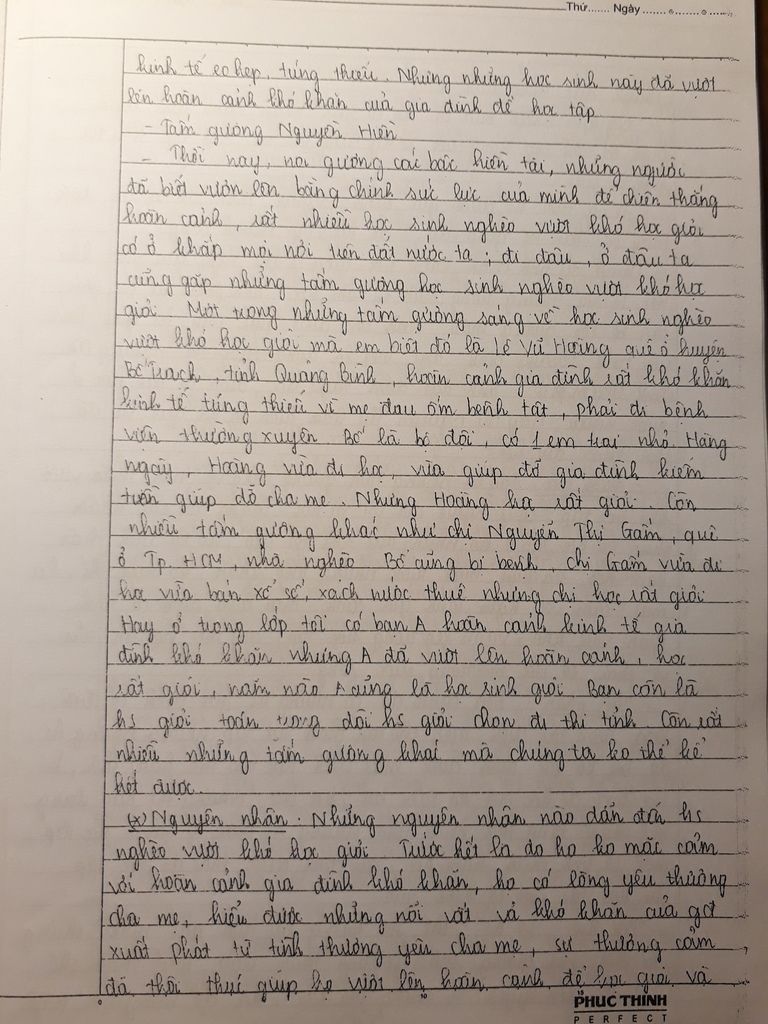 Thứ....... Ngày ......................
kinh tế eo hẹp, túng thiếu. Nhưng những học sinh này đã vượt
lên hoàn cảnh khó khăn của gia đình để học tập
- Tấm gương Nguyễn Hiền
- Thời nay, noi gương các bậc hiền tài, những người
đã biết vươn lên bằng chính sức lực của mình để chiến thắng
hoàn cảnh, rất nhiều học sinh nghèo vượt khó học giỏi
có ở khắp mọi nơi trên đất nước ta; đi đâu, ở đâu ta
cũng gặp những tấm gương học sinh nghèo vượt khó học
giỏi. Một trong những tấm gương sáng về học sinh nghèo
vượt khó học giỏi mà em biết đó là Lê Vũ Hoàng quê ở huyện
Bố Trạch, tỉnh Quảng Bình, hoàn cảnh gia đình rất khó khăn
kinh tế túng thiếu vì mẹ đau ốm bệnh tật, phải đi bệnh
viện thường xuyên. Bố là bộ đội, có 1 em trai nhỏ. Hàng
ngày, Hoàng vừa đi học, vừa giúp đỡ gia đình kiếm
tiền giúp đỡ cha mẹ. Nhưng Hoàng học rất giỏi. Còn
nhiều tấm gương khác như chị Nguyễn Thị Gấm, quê
ở Tp. HCM, nhà nghèo Bố cũng bị bệnh, chị Gấm vừa đi
học vừa bán xổ số, xách nước thuê nhưng chị học rất giỏi
Hay ở trong lớp tôi có bạn A hoàn cảnh kinh tế gia
đình khó khăn nhưng A đã vượt lên hoàn cảnh, học
rất giỏi, năm nào A cũng là học sinh giỏi. Bạn còn là
hs giỏi toán trong đội hs giỏi chọn đi thi tỉnh. Còn rất
nhiều những tấm gương khác mà chúng ta ko thể kể
hết được.
(*) Nguyên nhân. Những nguyên nhân nào dẫn đến hs
nghèo vượt khó học giỏi. Trước hết là do họ ko mặc cảm
với hoàn cảnh gia đình khó khăn, họ có lòng yêu thương
cha mẹ, hiểu được những nỗi vất vả khó khăn của gđ
xuất phát từ tình thương yêu cha mẹ, sự thương cảm
đã thôi thúc giúp họ vượt lên hoàn cảnh để học giỏi và
PHUC THINH
PERFECT